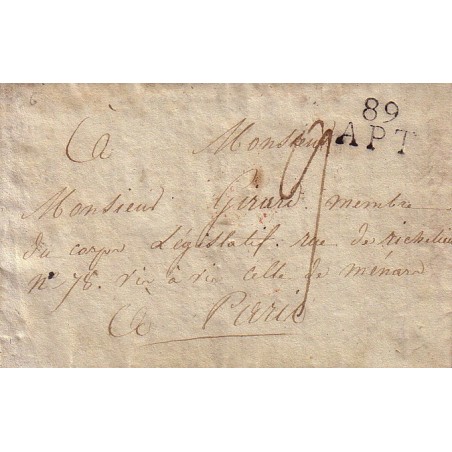 89
APT
à Monsieur
Monsieur Girard membre
du corps Législatif. rue de richelieu
n° 78. vis à vis celle de ménars
à Paris